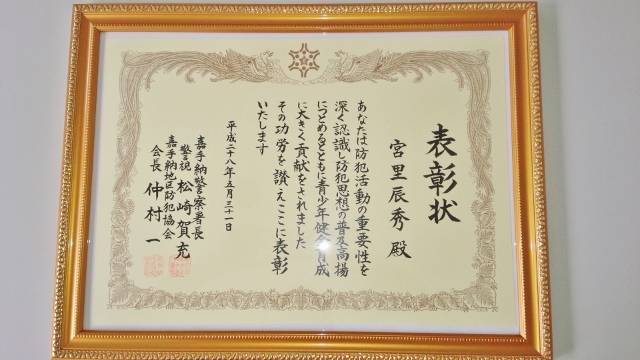 表彰状
宮里辰秀 殿
あなたは防犯活動の重要性を
深く認識し防犯思想の普及高揚
につとめるとともに青少年健全育成
に大きく貢献をされました
その功労を讃えここに表彰
いたします
平成二十八年五月三十一日
嘉手納警察署長
警視 松崎賀充
嘉手納地区防犯協会
会長 仲村一